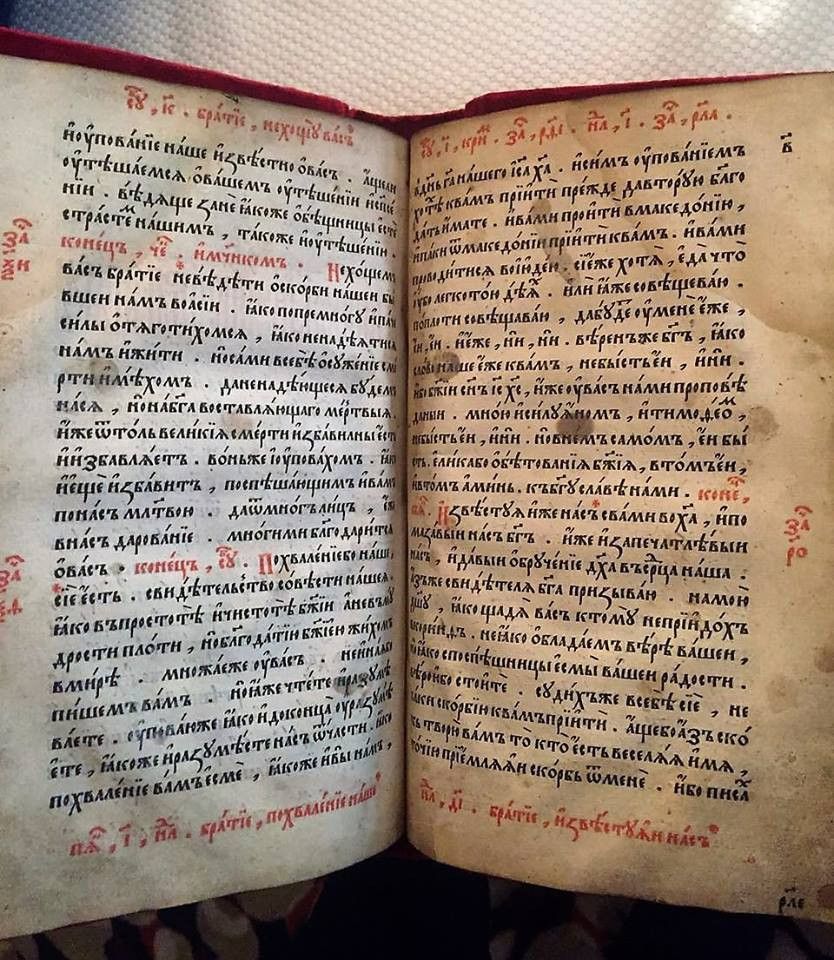 к҃. бра́тїе, нехощꙋ̀ва́съ
и҆оу҆пова́нїе на́ше и҆звѣ́стно ѡ҆ва́съ. а҆́щели
оу҆тѣша́емсѧ ѡ҆ва́шемъ оу҆тѣше́нїи
нїи. вѣ́дѧще занѐ ꙗ҆́коже ѻ҆бе́щницы є҆стѐ
страсте́мъ на́шимъ, та́коже и҆оу҆тѣше́нїи.
коне́цъ, и҆му́чнкомъ. Нехо́щемъ
ва́съ бра́тїе невѣ́дѣти ѡ҆ско́рби на́шей бы́
вшеи на́мъ воа҆сі́и. ꙗ҆́ко попремно́гу и҆па́че
си́лы ѻ҆тѧготи́хомсѧ, ꙗ҆́ко ненадѣ́ѧтисѧ
на́мъ и҆жи́ти. носа́ми всебѣ̀ ѡ҆сужде́нїе сме́
рти и҆мѣ́хомъ. да ненадѣ́ющесѧ бу́демъ
на́сѧ, нона́бг҃а воставлѧ́ющаго ме́ртвыѧ.
и҆́же ѿто́ль вели́кїѧ сме́рти и҆зба́вилны є҆́сть
и҆и҆збавлѧ́етъ. во́ньже и҆оу҆пова́хомъ. ꙗ҆́ко
и҆є҆щѐ и҆зба́витъ, поспѣша́ющимъ и҆ва́мъ
пона́съ мл҃твою. даѿмно́гъ ли́цъ, є҆́же
вна́съ дарова́нїе. мно́гими бл҃годари́тсѧ
ѡ҆ва́съ. коне́цъ, Похвале́нїебо на́ше,
сїѐ є҆́сть. свидѣ́тельство со́вѣсти на́шеѧ.
ꙗ҆́ко въпростотѣ̀ и҆чистотѣ̀ бж҃їи а҆невъму́
дрости пло́ти, ноблагода́тїю бж҃їею жи́хомъ
вми́рѣ. мно́жаеже оу҆ва́съ. неи҆на́ѧбо
пи́шемъ ва́мъ. но ꙗ҆́же чте́те и҆разумѣ́
ва́ете. оу҆пова́юже ꙗ҆́ко и҆доконца̀ оу҆разумѣ́
є҆те, ꙗ҆́коже и҆разумѣ́сте на́съ ѿча́сти. ꙗ҆́ко
похвале́нїе ва́мъ є҆смѐ, ꙗ҆́коже и҆вы̀ на́мъ,
бра́тїе, похвале́нїе на́ше
в҃
гд҃а на́шего і҆с҃а х҃а. и҆си́мъ оу҆пова́нїемъ
хотѣ́х ква́мъ прїитѝ пре́жде да втору́ю бл҃го
да́ть и҆́мате. и҆ва́ми проитѝ вмакедо́нїю,
и҆па́ки ѿмакедо́нїи прїитѝ ква́мъ. и҆ва́ми
проводи́тисѧ вои҆ю̀де́ю. сїе́же хотѧ̀, є҆да̀ что̀
оу҆́бо легкото́ю дѣ́ѧхъ. и҆ли ꙗ҆́же совѣщева́ю.
попло́ти совѣщава́ю, дабу́детъ оу҆менѐ є҆́же,
є҆́и, є҆́и. и҆є҆́же, нѝ, нѝ. вѣ́ренъже бг҃ъ, ꙗ҆́ко
сло́во на́ше є҆́же ква́мъ, небы́сть є҆́и, и҆нѝ.
и҆́бо бж҃їи сн҃ъ і҆с҃ъ х҃съ, и҆́же оу҆ва́съ на́ми проповѣ́
даныи. мно́ю и҆силꙋа́номъ, и҆тимоѳе́омъ,
небы́сть є҆́и, и҆нѝ. нови́емъ само́мъ, є҆́и бы́
сть. є҆ли́кабо ѻ҆бѣтова́нїѧ бж҃їѧ, вто́мъ є҆́и,
и҆вто́мъ а҆ми́нь. къбг҃у сла́вѣ на́ми. коне́,
И҆звѣсту́ѧи же на́съ сва́ми вох҃а, и҆по
мазавы́и на́съ бг҃ъ. и҆́же и҆запечатлѣ́выи
на́съ, и҆да́выи ѻ҆бруче́нїе дх҃а въсрдца̀ на́ша.
а҆́зъже свидѣ́телѧ бг҃а призыва́ю. намою̀
дш҃у, ꙗ҆́ко щадѧ̀ ва́съ ктому̀ неприидо́хъ
вкори́нѳъ. неꙗ҆́ко ѻ҆блада́емъ вѣ́рѣ ва́шеи,
но ꙗ҆́ко споспѣ́шницы є҆смы̀ ва́шеи ра́дости.
вѣ́роюбо стоитѐ. суди́хъже всебѣ̀ сїѐ, не
па́ки ско́рбїю ква́мъ прїитѝ. а҆́щебо а҆́зъ ско́
рбь творю̀ ва́мъ то̀ кто̀ є҆́сть веселѧ́и мѧ̀,
то́чїю прїе́млѧи ско́рбь ѿменѐ. и҆́бо писа́хъ
бра́тїе, и҆звѣсту́ѧи на́съ
рл҃е